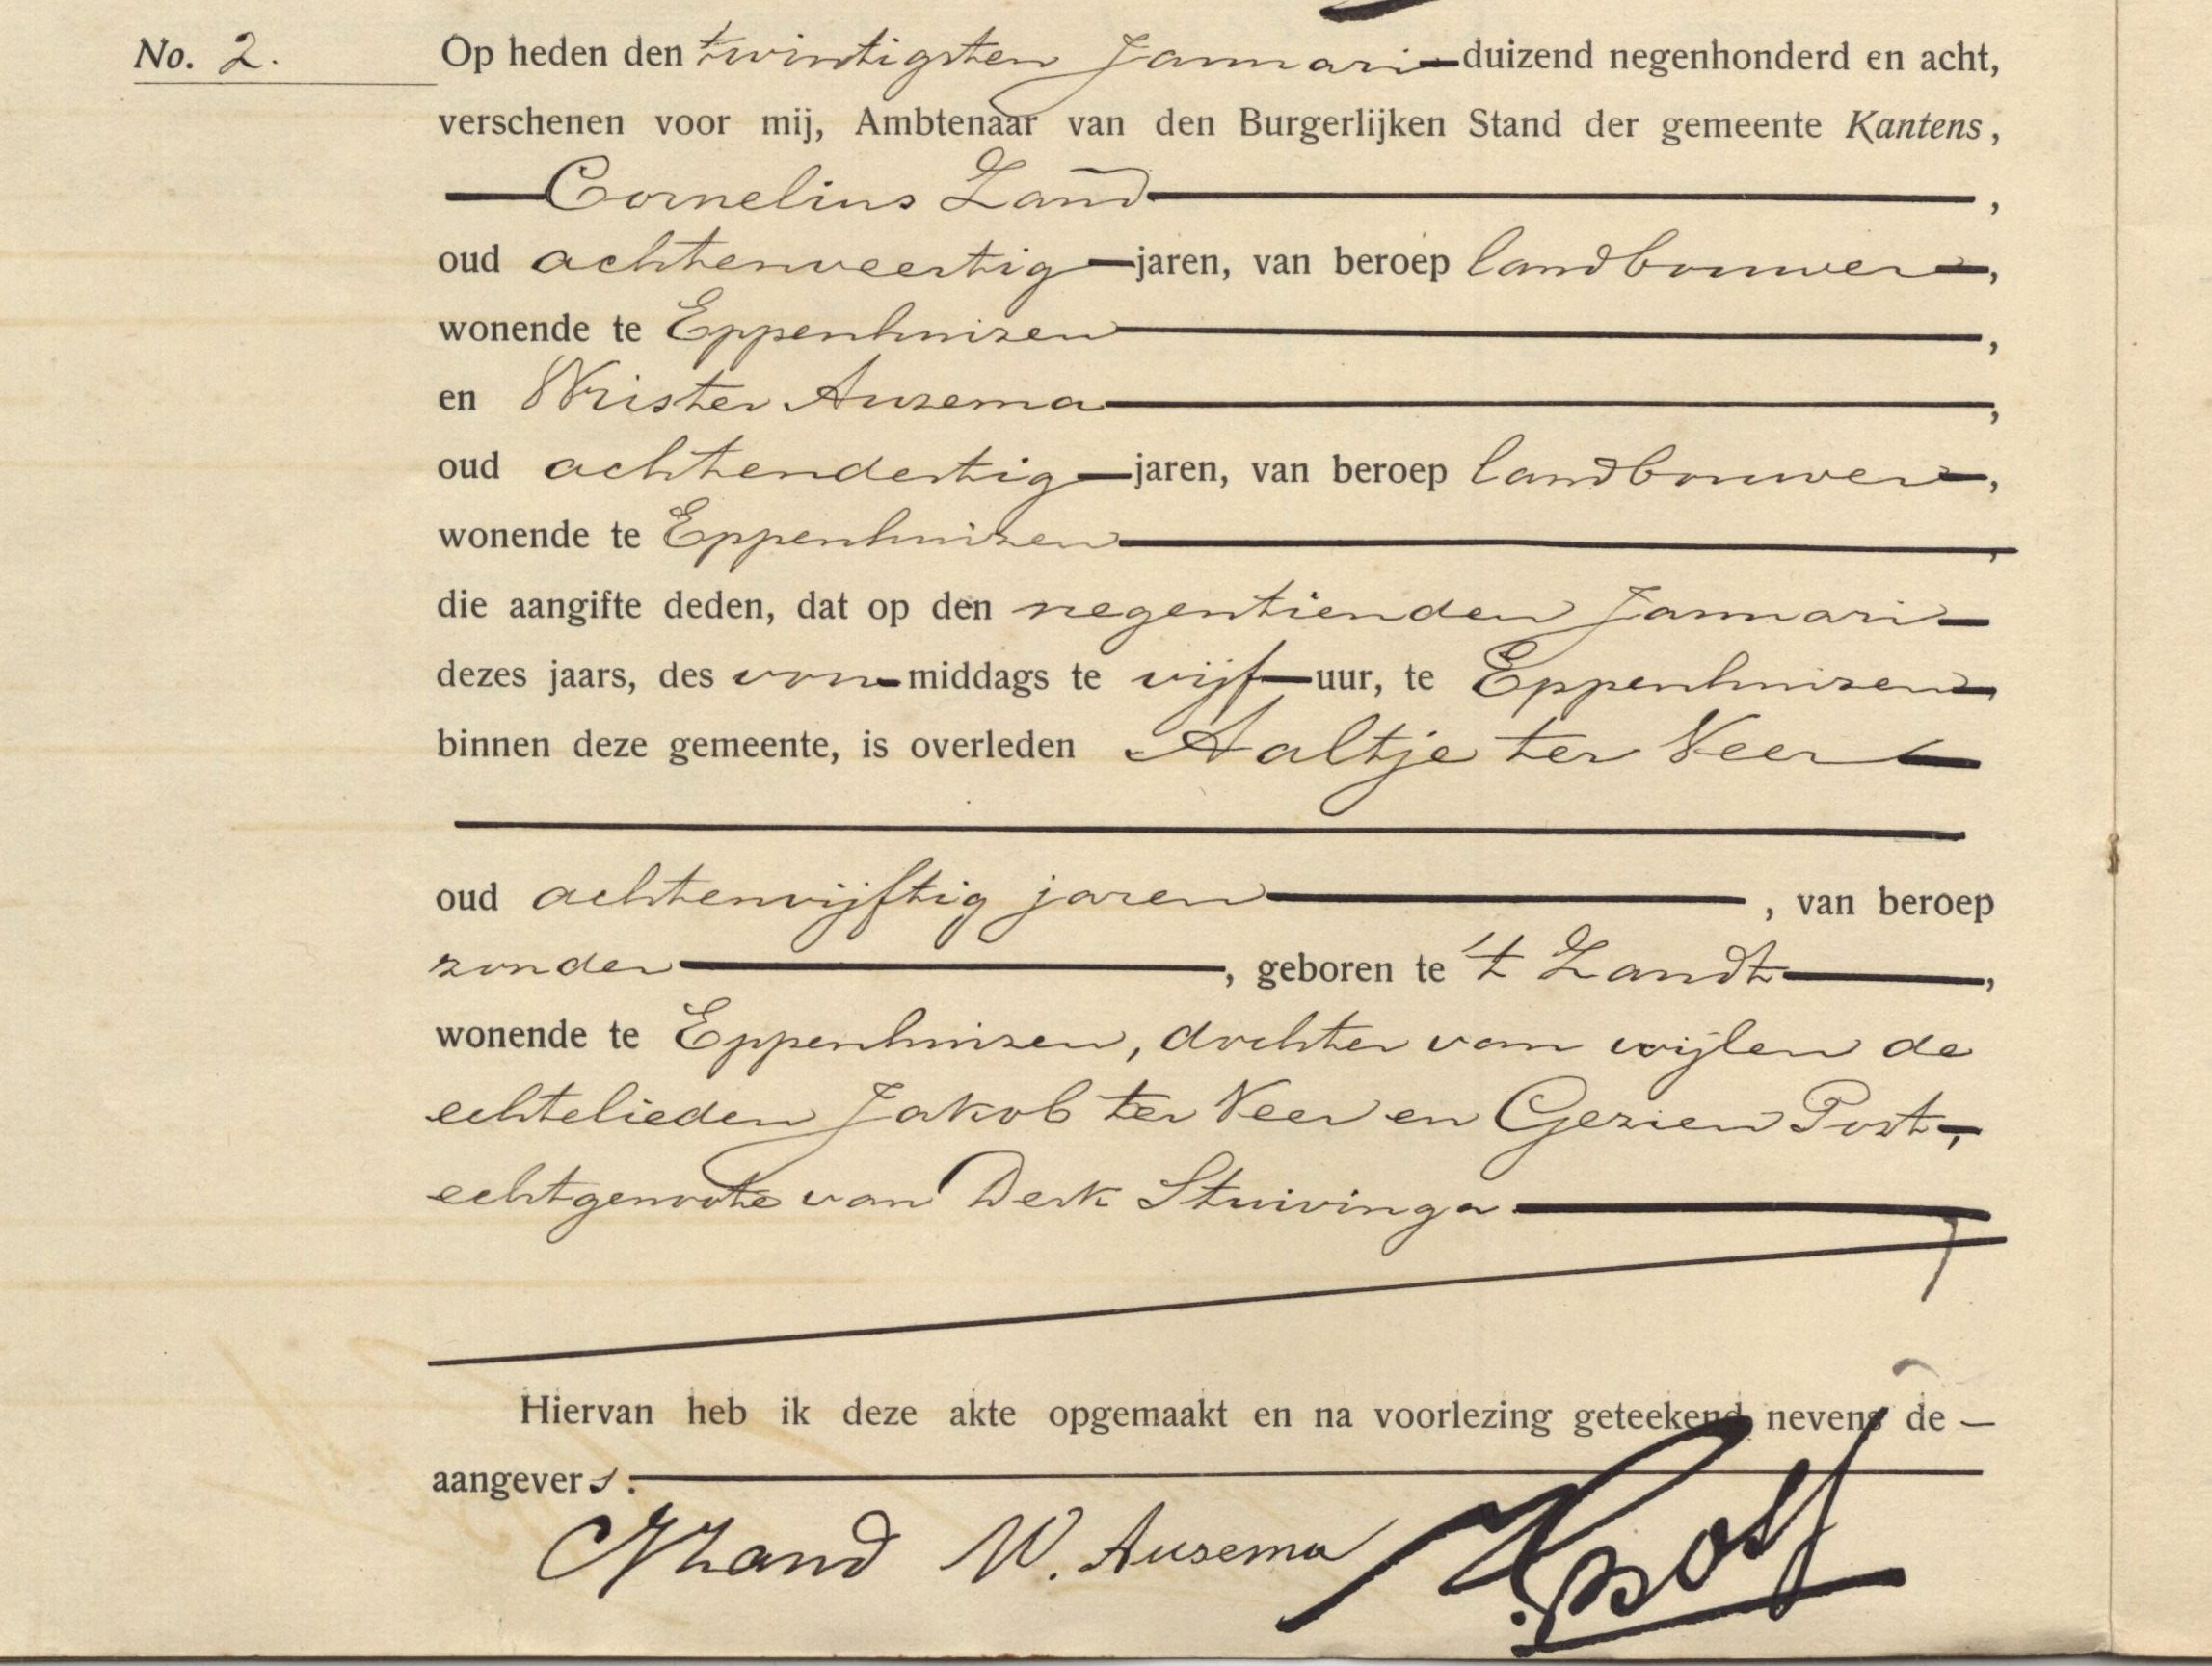 No. 2. Op heden den twintigsten Januari duizend negenhonderd en acht,
verschenen voor mij, Ambtenaar van den Burgerlijken Stand der gemeente Kantens,
Cornelius Zand,
oud achtenveertig jaren, van beroep landbouwer,
wonende te Eppenhuizen,
en Wrister Auzema,
oud achtendertig jaren, van beroep landbouwer,
wonende te Eppenhuizen,
die aangifte deden, dat op den negentienden Januari
dezes jaars, des voormiddags te vijf uur, te Eppenhuizen,
binnen deze gemeente, is overleden Aaltje ter Veer
oud achtenvijftig jaren, van beroep
zonder, geboren te 't Zandt,
wonende te Eppenhuizen, dochter van wijlen de
echtelieden Jakob ter Veer en Gezien Post,
echtgenoote van Derk Stuivinga
Hiervan heb ik deze akte opgemaakt en na voorlezing geteekend nevens de
aangevers.
Zand W. Auzema